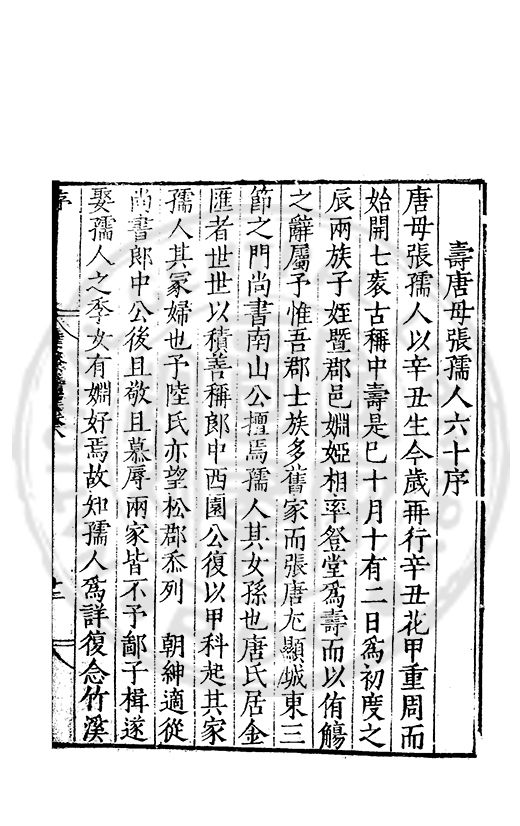 壽唐母張孺人六十序
唐母張孺人以辛丑生今歲再行辛丑花甲重周而
始開七袠古稱中壽是巳十月十有二日爲初度之
辰兩族子姪曁郡邑婣婭相率登堂爲壽而以侑觴
之辭屬予惟吾郡士族多舊家而張唐尤顯城東三
節之門尚書南山公擅焉孺人其女孫也唐氏居金
匯者世世以積善稱郎中西園公復以甲科起其家
孺人其冢婦也予陸氏亦望松郡忝列 朝紳適從
尚書郎中公後且敬且慕辱兩家皆不予鄙子楫遂
娶孺人之季女有婣好焉故知孺人爲詳復念竹溪
序